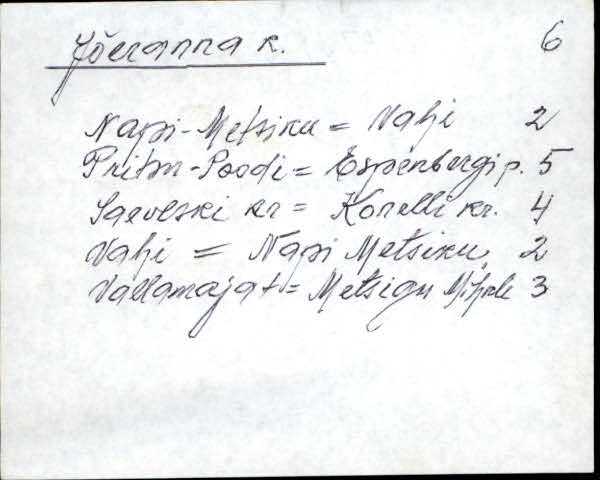 Jõeranna k. 6
Napi-Metsiku = Vahi 2
Pritsu-Poodi = Espenbergi p. 5
Saeveski kr = Korelli kr. 4
Vahi = Napi Metsiku 2
Vallamaja t = Metsigu 3